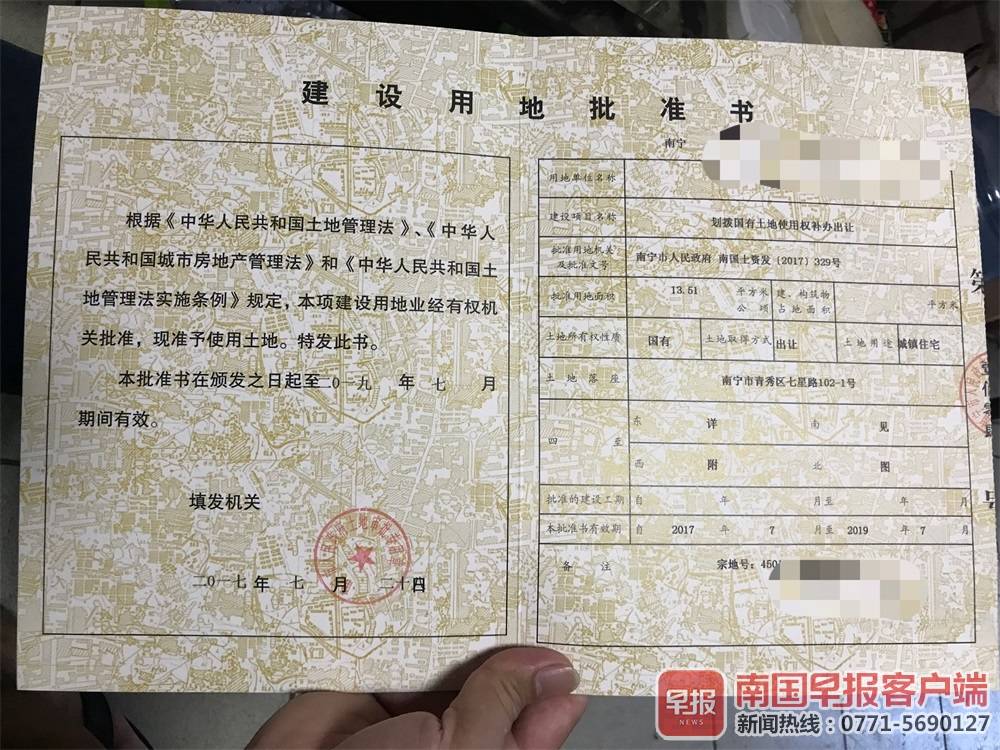 建设用地批准书
根据《中华人民共和国土地管理法》、《中华人
民共和国城市房地产管理法》和《中华人民共和国土
地管理法实施条例》规定，本项建设用地业经有权机
关批准，现准予使用土地。特发此书。
本批准书在颁发之日起至二〇一九 年 七 月
期间有效。
填发机关
二〇一七 年 七 月 二十 日
南宁
用地单位名称
建设项目名称 划拨国有土地使用权补办出让
批准用地机关
及批准文号 南宁市人民政府 南国土资发〔2017〕329号
批准用地面积 13.51 平方米
公 顷 建、构筑物
占地面积 平方米
土地所有权性质 国有 土地取得方式 出让 土地用途 城镇住宅
土地落座 南宁市青秀区七星路102-1号
四至 东 详 南 见
西 附 北 图
批准的建设工期 自 年 月至 年 月
本批准书有效期 自 2017 年 7 月至 2019 年 7 月
备注 宗地号：450
早报
NEWS
南国早报客户端
新闻热线：0771-5690127